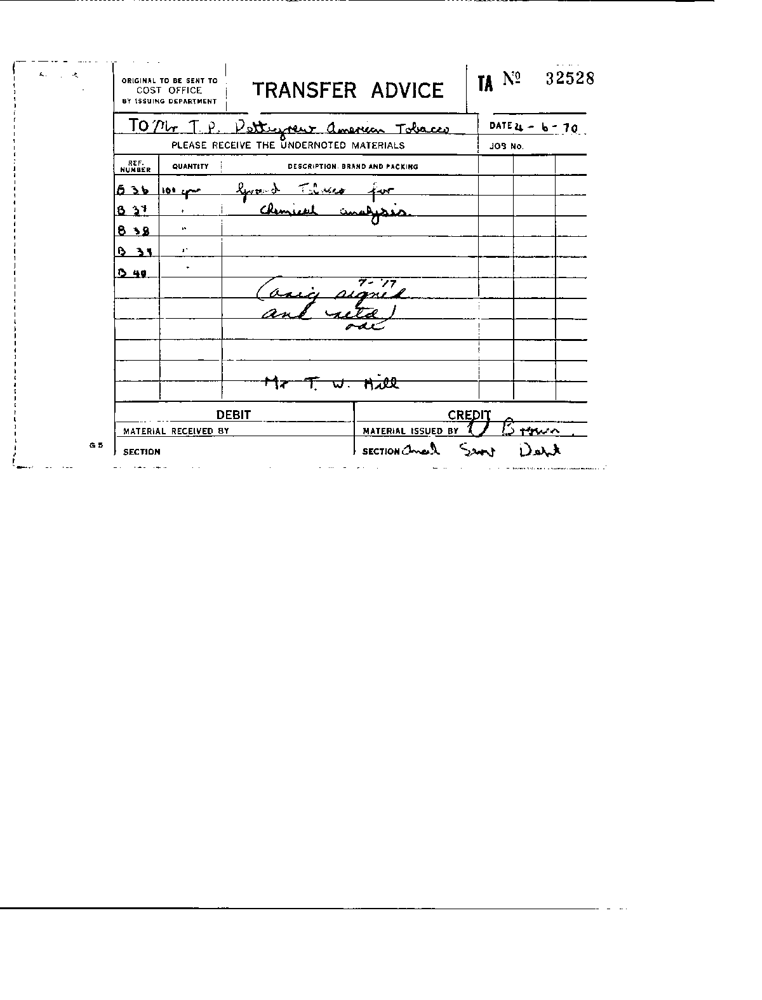 ORIGINAL TO BE SENT TO
COST OFFICE
BY ISSUING DEPARTMENT
TRANSFER ADVICE
TA Nº 32528
TO Mr T. P. American Tobacco
DATE 4 - 6 - 70
PLEASE RECEIVE THE UNDERNOTED MATERIALS
JOB No.
REF. NUMBER QUANTITY DESCRIPTION, BRAND AND PACKING
B 36 100 gm Ground Tobacco for
B 37 " Chemical analysis.
B 38 "
B 39 "
B 40 "
7-'17
(orig signed
and retd)
Mr T. W. Hill
DEBIT CREDIT
MATERIAL RECEIVED BY MATERIAL ISSUED BY Brown
G 5
SECTION SECTION Dept